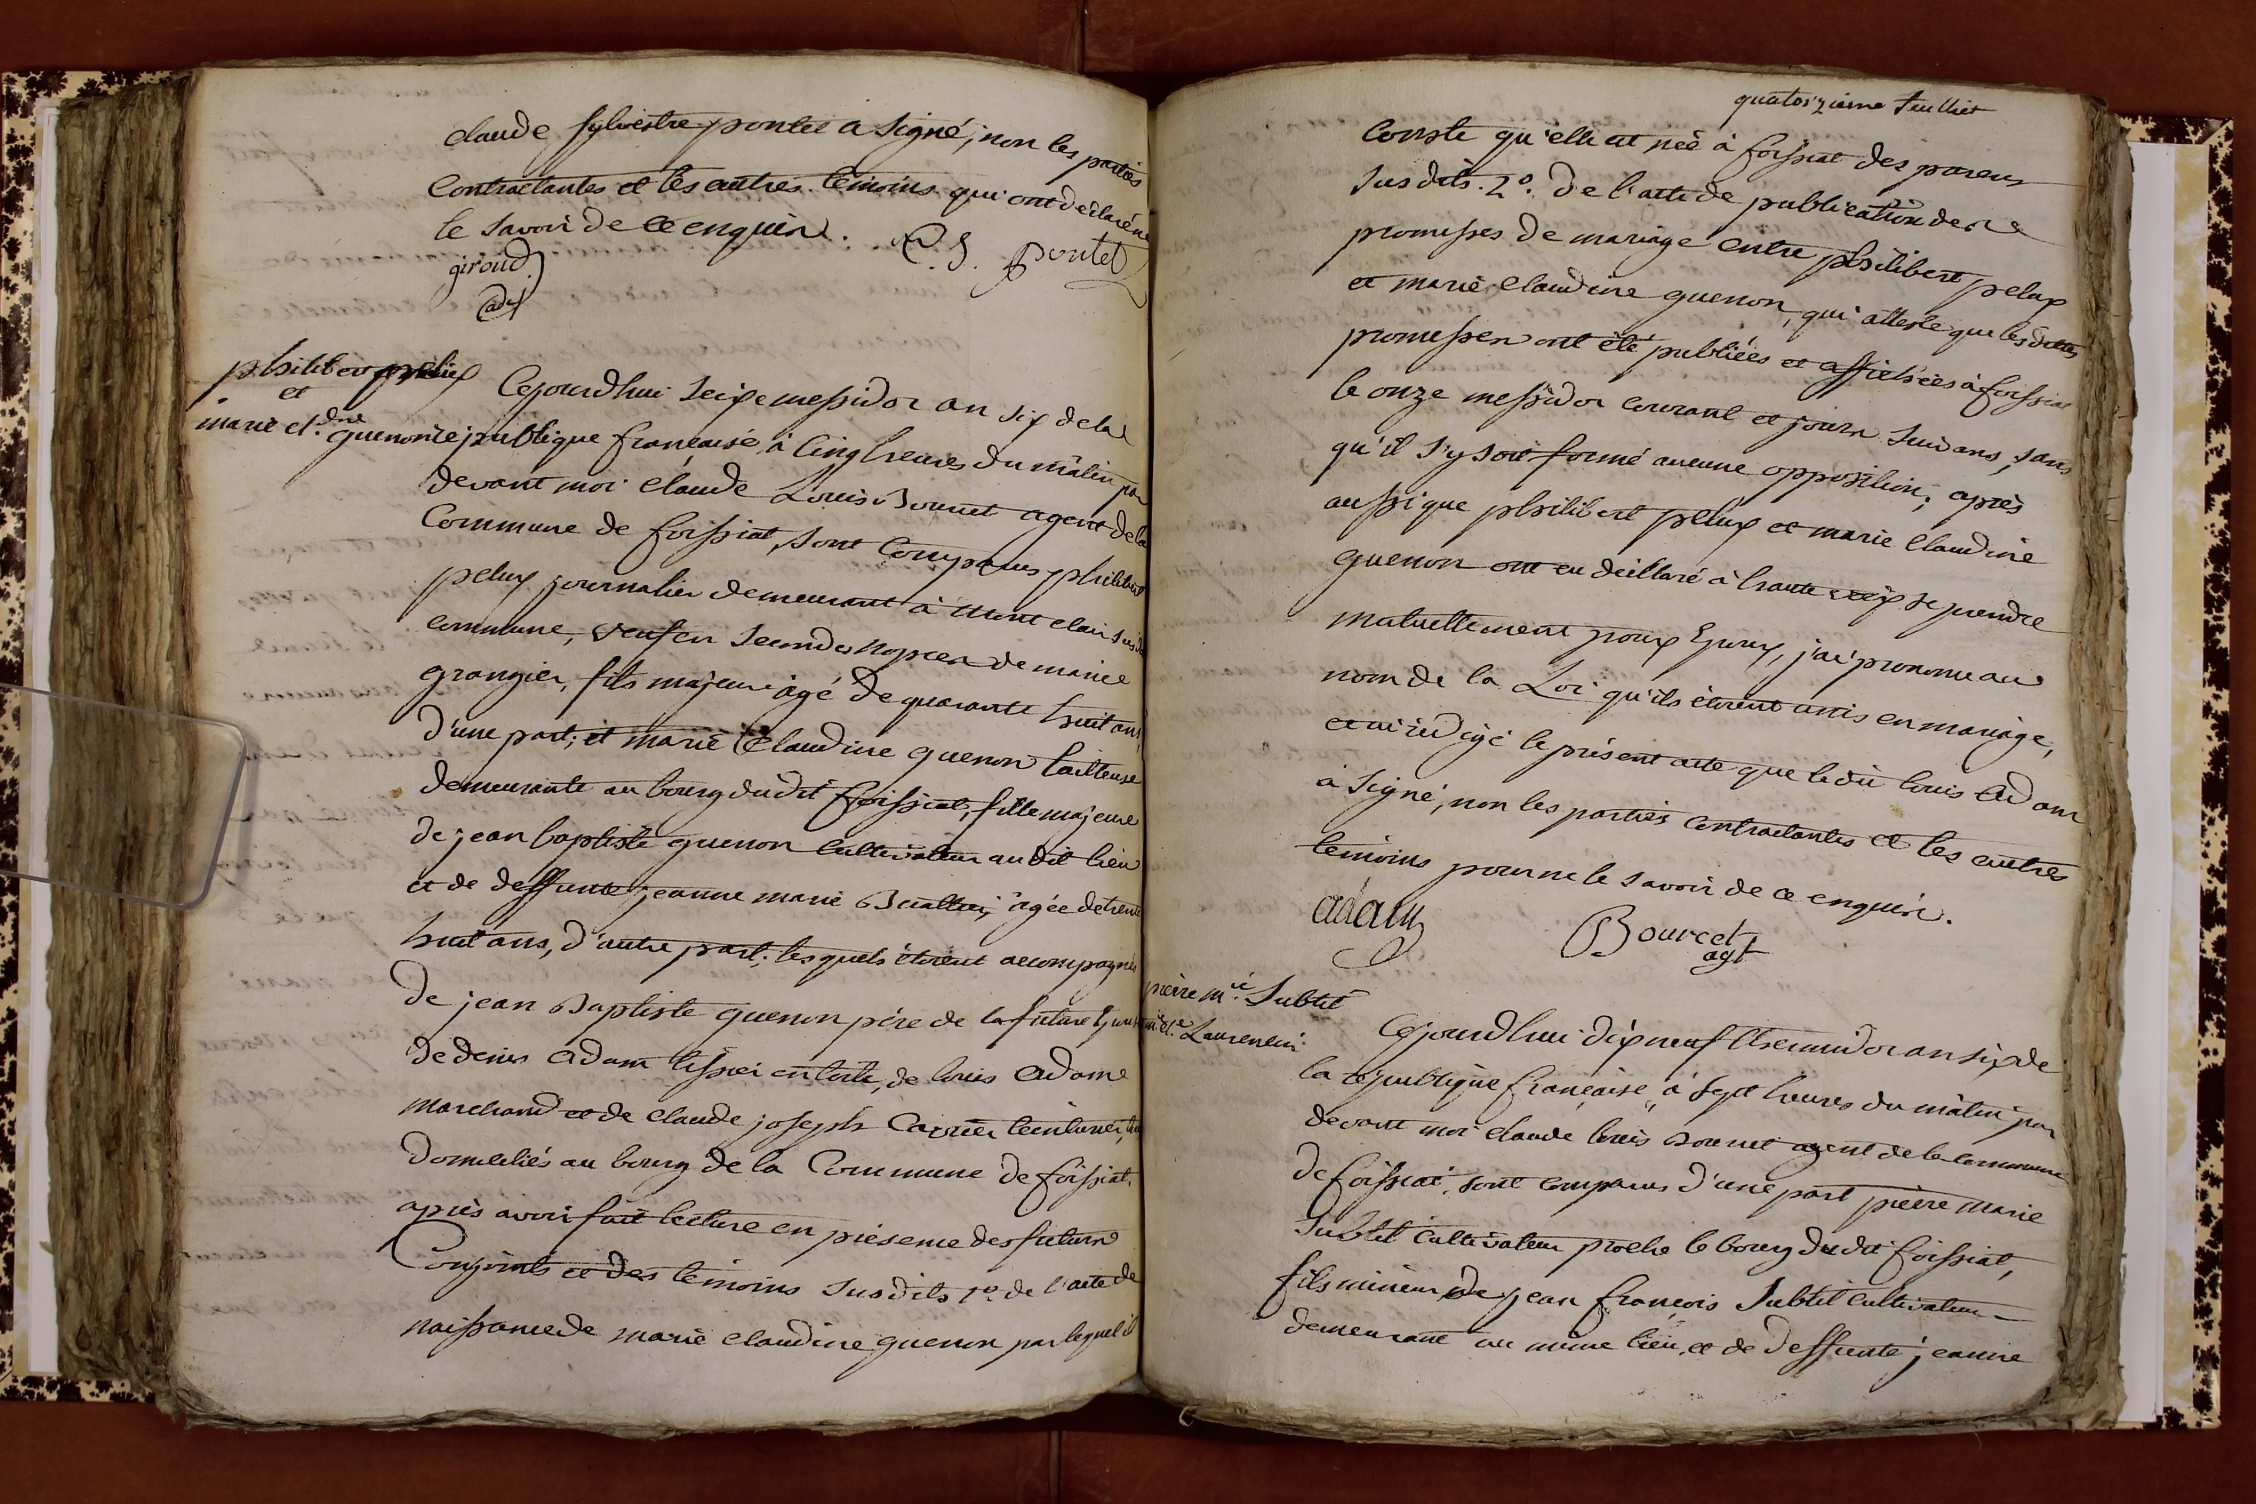 claude sylvestre pontet a signé, non les parties
contractantes et les autres témoins qui ont déclaré ne
le savoir de ce enquis.
C. S. pontet
giroud
adj
philibert pelux
et
marie cl.dine guenon
Cejourdhui seize messidor an six de la
république française, à cinq heures du mâtin par
devant moi claude Louis Bourcet agent de la
Commune de foissiat, sont comparus philibert
pelux journalier demeurant à mont clair susdite
commune, veuf en secondes nopces de marie
grangier, fils majeur âgé de quarante huit ans,
d'une part; et marie Claudine guenon tailleuse
demeurante au bourg dudit foissiat, fille majeure
de jean baptiste guenon cultivateur au dit lieu
et de deffunte jeanne marie âgée de trente
huit ans, d'autre part; les quels étoient accompagnés
de jean Baptiste guenon père de la future Epouse
de denis adam tissier en toile, de louis adam
marchand et de claude joseph Carrier teinturier, tous
domiciliés au bourg de la Commune de foissiat.
après avoir fait lecture en présence des futurs
Conjoints et des témoins susdits 1o. de l'acte de
naissance de marie claudine guenon par lequel il
quatorzieme feuillet
Conste qu'elle est née à foissiat des parens
susdits. 2o. de l'acte de publication des
promesses de mariage entre philibert pelux
et marie claudine guenon, qui atteste que les dittes
promesses ont été publiées et affichées à foissiat
le onze messidor courant et jours suivans, sans
qu'il s'y soit formé aucune opposition; après
aussi que philibert pelux et marie claudine
guenon ont eu déclaré à haute voix se prendre
mutuellement pour Epoux, j'ai prononcé au
nom de la Loi qu'ils étoient unis en mariage,
et ai rédigé le présent acte que ledit louis adam
à signé, non les parties contractantes et les autres
témoins pour ne le savoir de ce enquis.
adam
Bourcet
agt
pierre m.ie Subtil
m.ie cl.e Laurencin
Cejourdhui dix neuf thermidor an six de
la république française, à sept heures du mâtin par
devant moi claude louis Bourcet agent de la commune
de foissiat, sont comparus d'une part pierre marie
Subtil cultivateur proche le bourg du dit foissiat,
fils mineur de jean françois Subtil cultivateur
demeurant au même lieu, et de deffunte jeanne